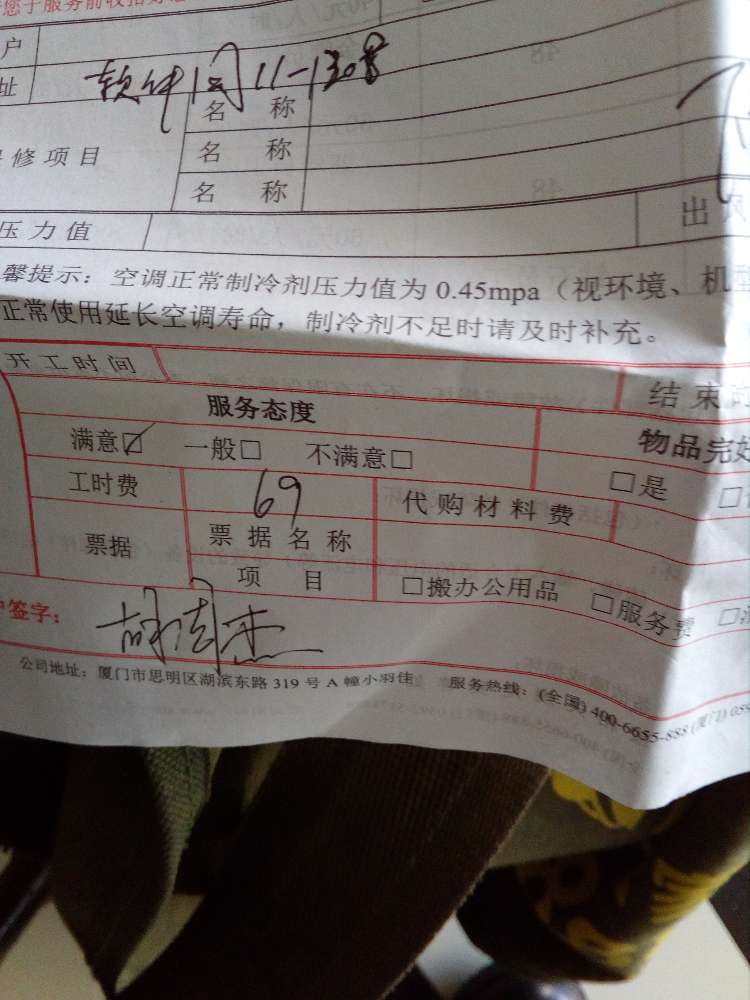 您于服务前收拾好
户
址 软件园11-1308
名 称
修项目 名 称
名 称
压力值 出风
馨提示：空调正常制冷剂压力值为 0.45mpa（视环境、机型
正常使用延长空调寿命，制冷剂不足时请及时补充。
开工时间 结束时
服务态度 物品完好
满意☑ 一般□ 不满意□ □是 □
工时费 69 代购材料费
票据 票据名称
项 目 □搬办公用品 □服务费 □
签字：
公司地址：厦门市思明区湖滨东路 319 号 A 幢小羽佳 服务热线：(全国) 400-6655-888 (厦门) 059